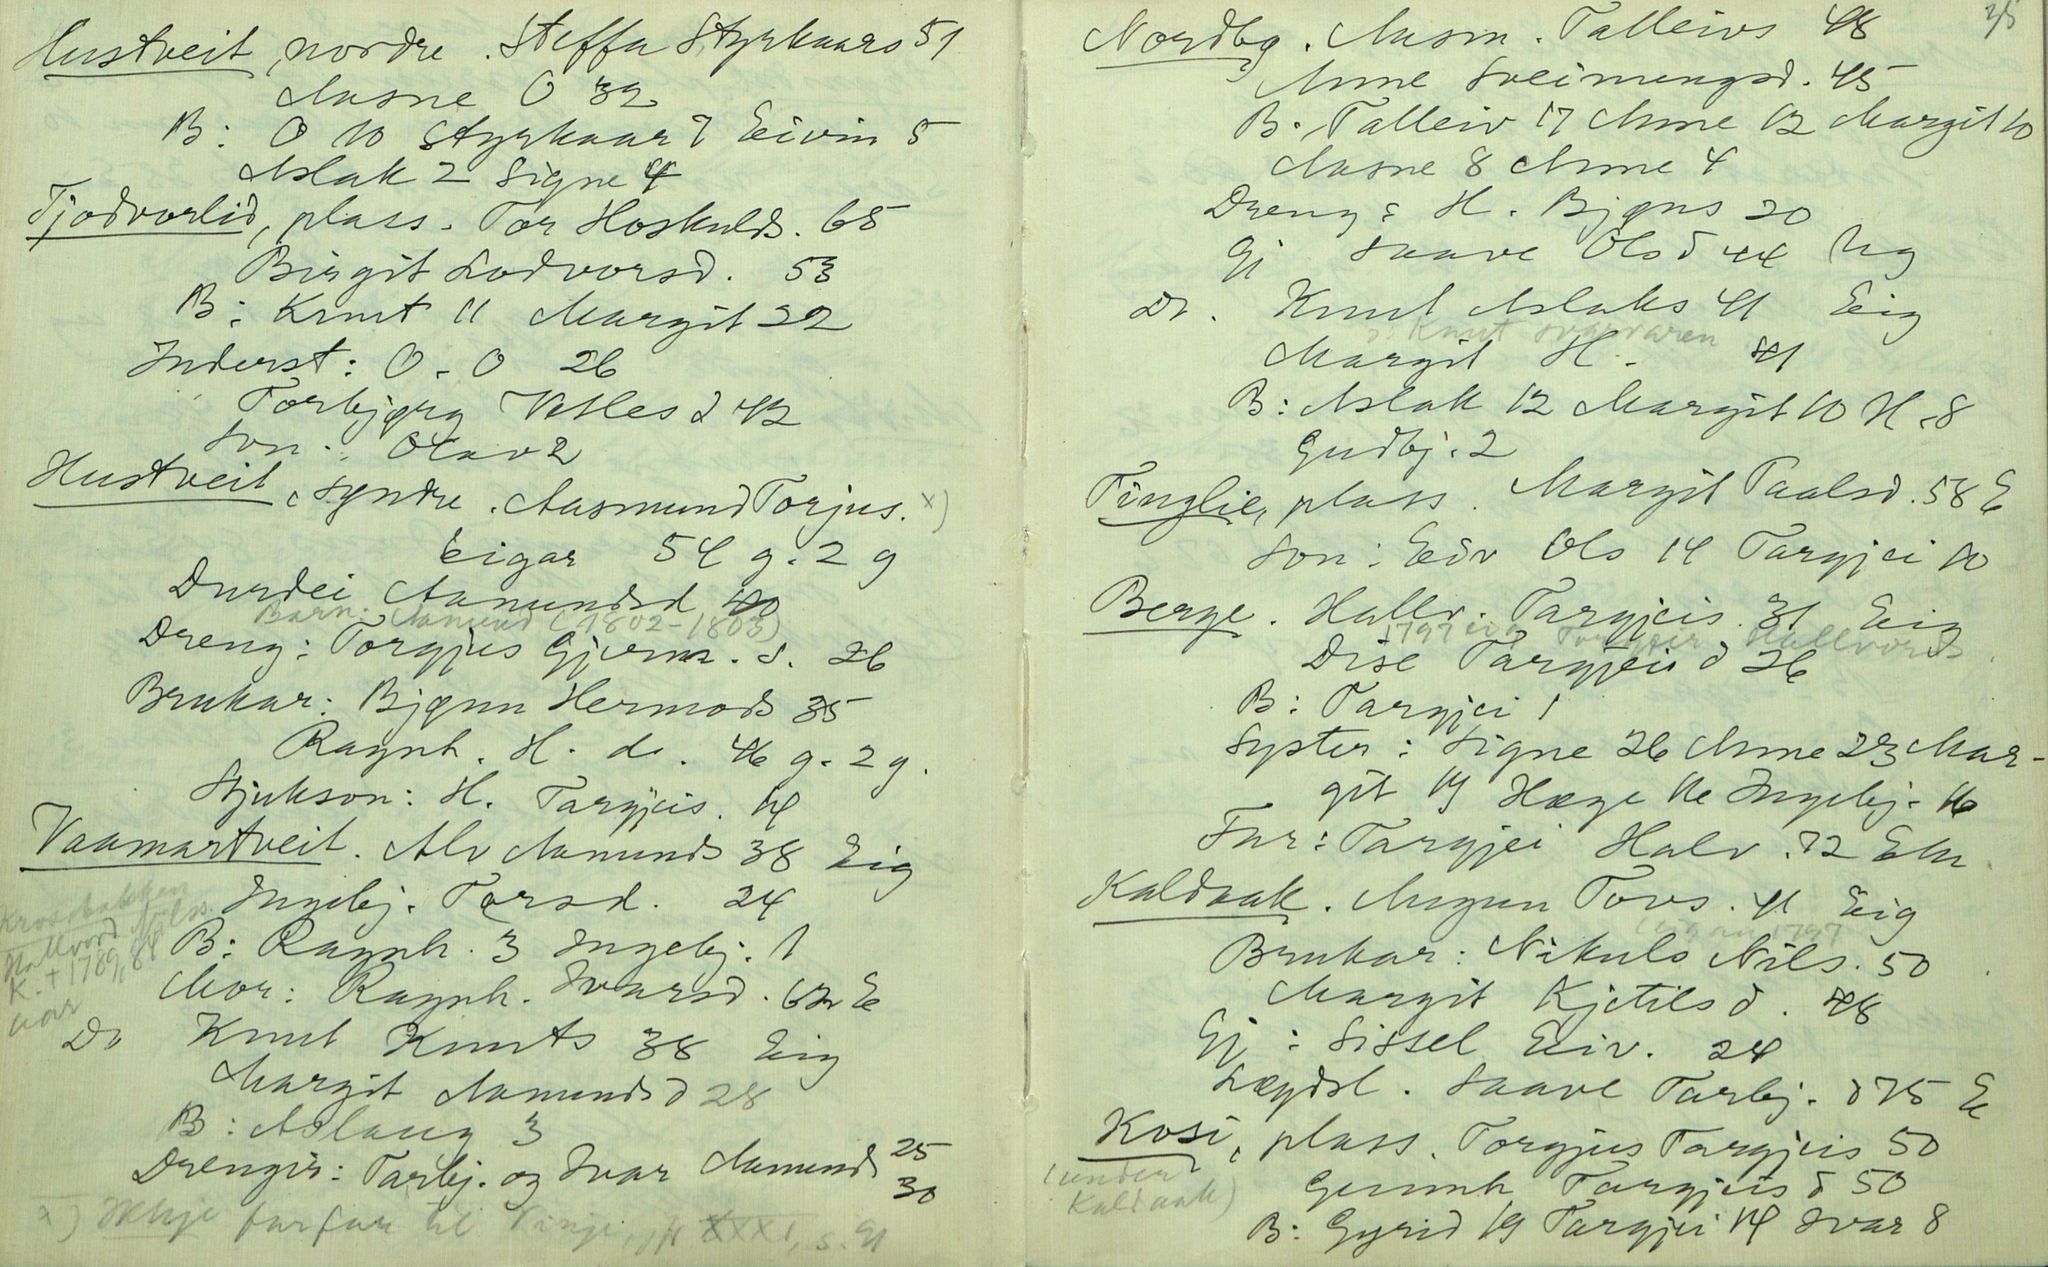 Hustveit, nordre. Steffa Styrkaars 51
Aasne O 32
B: O 10 Styrkaar 7 Eivin 5
Aslak 2 Signe 4
Tjodvorlid, plass. Tor Hoskulds. 65
Birgit Lodvorsd. 53
B: Knut 11 Margit 22
Inderst: O. O 26
Torbjørg Vetles d 42
Son: Olav 2
Hustveit, syndre. Aasmund Torjus. x)
Eigar 54 g. 2 g
Durdei Aamundsd 40
Barn: Aamund (1802-1803)
Dreng: Torgjus Gjerm. s. 26
Brukar: Bjønn Hermods 35
Ragnh. H. d. 46 g. 2 g.
Stjukson: H. Targjeis. 14
Vaamartveit. Alv Aamunds 38 Eig
Ingebj. Torsd. 24
Krossbakken
Hallvord Nilss.
K. + 1789, 84
aar
B: Ragnh. 3 Ingebj. 1
Mor: Ragnh. Ivarsd. 62 E
Do Knut Knuts 38 Eig
Margit Aamundsd 28
B: Aslaug 3
Drengir: Tarbj. og Ivar Aamunds 25
30
x) Ikkje farfar til Vinje, jfr XXXI, s. 91
25
Nordbø. Aasm. Talleivs 48
Anne Sveinungsd. 45
B. Talleiv 17 Anne 12 Margit 10
Aasne 8 Anne 4
Dreng: H. Bjøns 20
Gj Saave Olsd 44 Ug
Do. Knut Aslaks 41 Eig
Knut Svartaren
Margit H. 41
B: Aslak 12 Margit 10 H. 8
Gudbj. 2
Tinglie, plass. Margit Paalsd. 58 E
Son: Eiv Ols 14 Targjei 10
Berge. Hallv. Targjeis. 31 Eig
1797 eig Targjei Hallvords
Dise Targjeis d 26
B: Targjei 1
Syster: Signe 26 Anne 23 Mar-
git 19 Hæge 16 Ingebj. 16
Far: Targjei Halv. 72 Ekm
Kaldaak. Augun Tovs. 41 Eig
1797
Brukar: Nikuls Nils. 50
Margit Kjetils d. 48
Gj: Sissel Eiv. 24
Lægdsl. Saave Tarbj. d 75 E
Kosi, plass. Torgjus Targjeis 50
(under
Kaldaak)
Gunnh Targjeis d 50
B: Gyrid 19 Targjei 14 Ivar 8